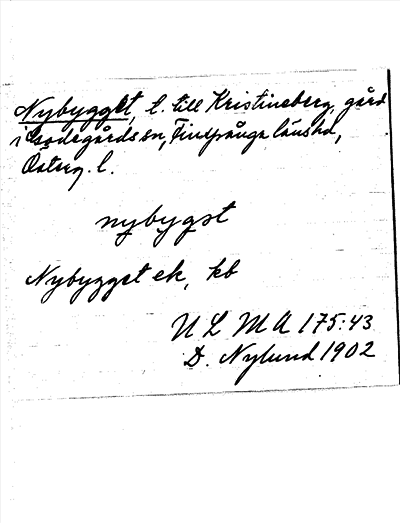 Nybygget, t. till Kristineberg, gård
i Godegårds sn, Finspånga länshd,
Österg. l.
nybygst
Nybygget ek, kb
U L M A 175:43
D. Nylund 1902